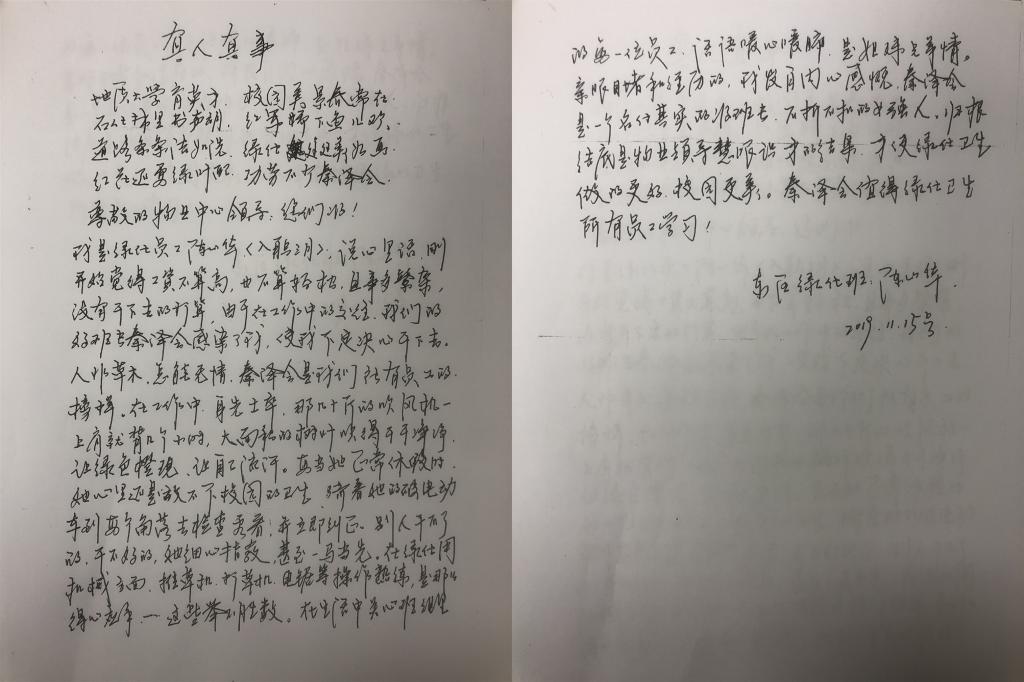 真人真事
地质大学育英才、校园美景春常在
道路条条洁如洗、绿化
红花还要绿叶配、功劳不小秦泽会、
尊敬的物业中心领导：您们好！
我是绿化员工陈小华〈入职3月〉、说心里话、刚
开始觉得工资不算高、也不算轻松、且事多繁杂，
没有干下去的打算、由于在工作中的 我们的
好班长秦泽会感染了我、使我下定决心干下去。
人非草木、怎能无情、秦泽会是我们所有员工的
榜样。在工作中、身先士卒、那几十斤的吹风机一
上肩就背几个小时，大面积的树叶吹得干干净净、
让绿色 让 流汗。每当她正常休假时、
她心里还是放不下校园的卫生 骑着她的 电动
车到每个角落去检查查看；并立即纠正。别人干不了
的、干不好的，她细心指教，甚至一马当先。在绿化用
机械方面、推草机、打草机、电锯等操作熟练，是那么
得心应手、一 这些举不胜数。在生活中关心班组里
的每一位员工、话语暖心暖肺、 姐妹兄弟情。
亲眼目睹和经历的，我发自内心感慨、秦泽会
是一个名付其实的好班长、不折不扣的女强人、归根
结底是物业领导慧眼识才的结果、才使绿化卫生
做的更好、校园更美。秦泽会值得绿化卫生
所有员工学习！
东区绿化班：陈小华、
2019.11.15号